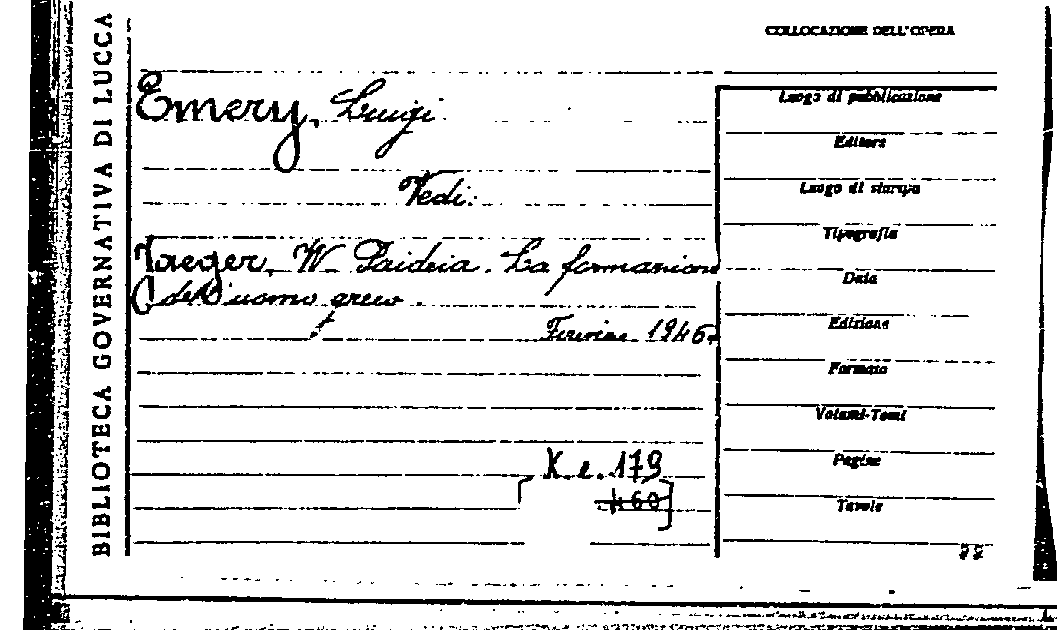 BIBLIOTECA GOVERNATIVA DI LUCCA
COLLOCAZIONE DELL'OPERA
Emery, Luigi
Vedi:
Jaeger, W. Paideia. La formazione
dell'uomo greco.
Firenze 1946.
K. e. 179
460]
Luogo di pubblicazione
Editore
Luogo di stampa
Tipografia
Data
Edizione
Formato
Volumi-Tomi
Pagine
Tavole